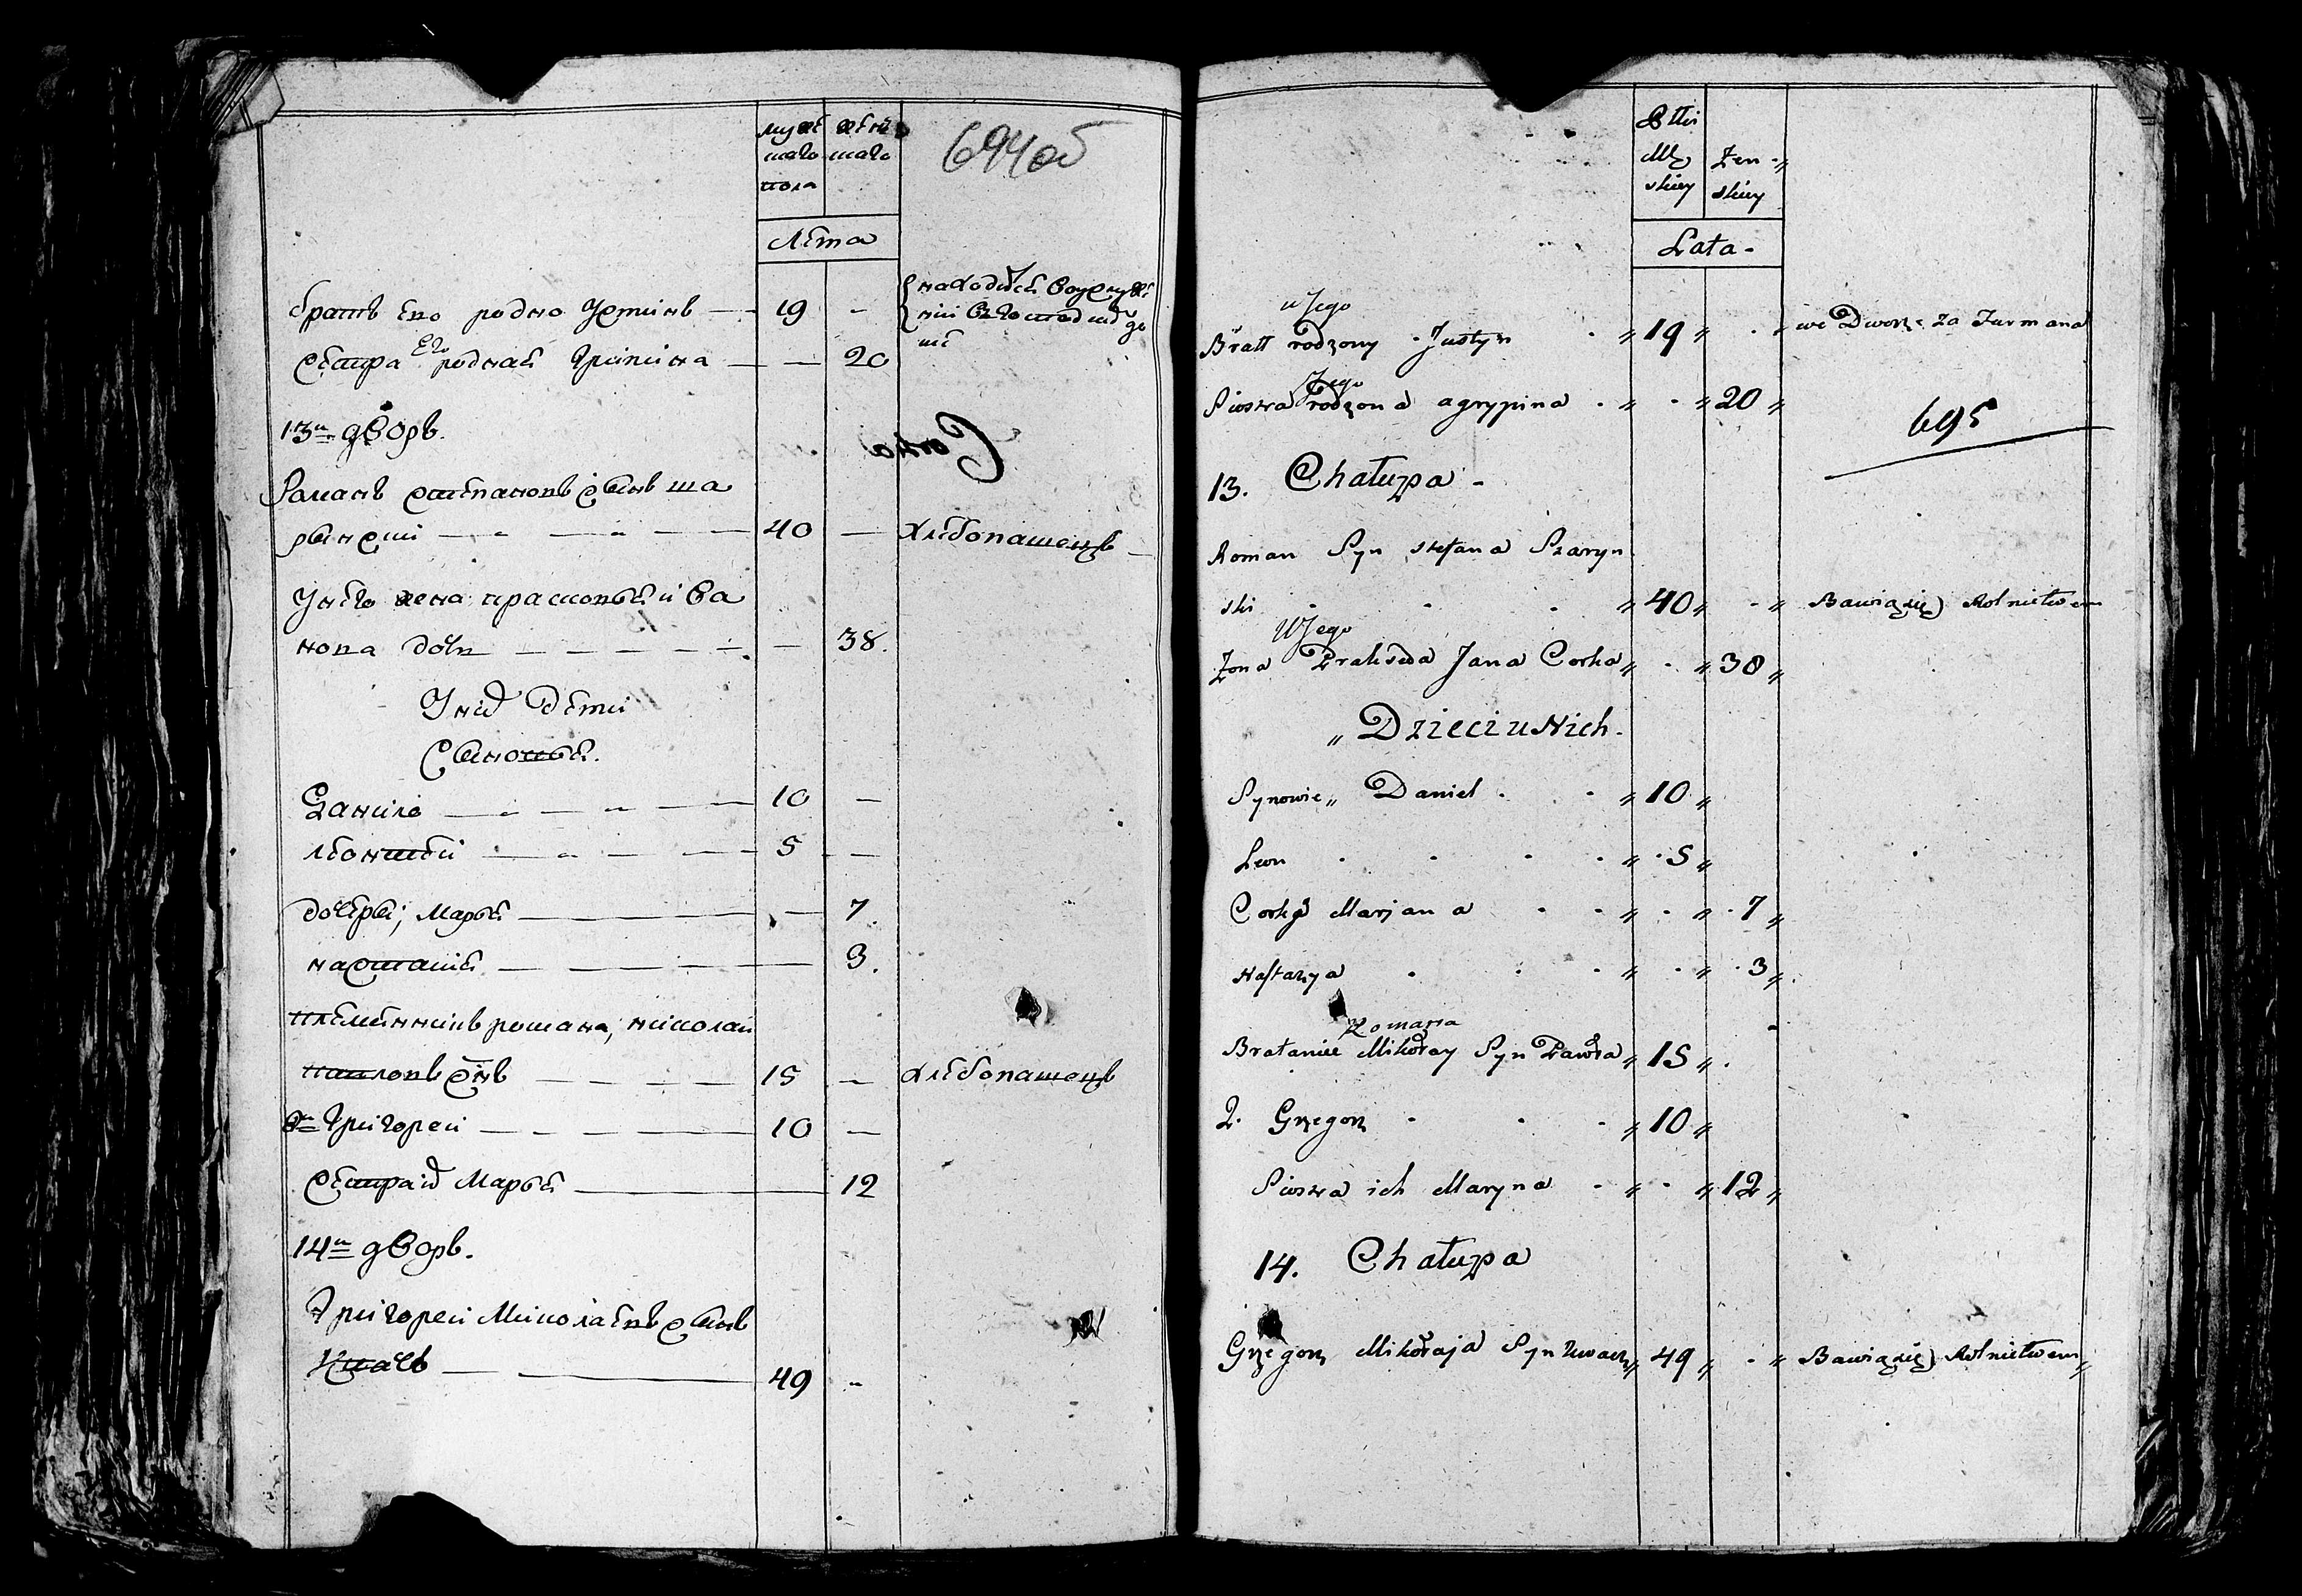 муже
скаго
пола
женъ
скаго
694об
Лѣта
братъ его родно Устинъ — 19 -
находитсѧ
Сестра Его роднаѧ Грипина — — 20
13й дворъ.
Романъ степановъ сынъ ша
рынски — 40 — хлебопашецъ
У него жена прасковьѧ ива
нова дочь — — 38.
У них Дети
Сыновьѧ.
Данило — 10 —
леонтей — 5 —
дочери, Марьѧ — — 7.
настасиѧ — — 3.
племѣнникъ романа, николаи
павловъ снъ — 15 — хлебопашецъ
2й Григореи — 10 —
Сестра их Марьѧ — 12
14й дворъ.
Григореи Миколаевъ сынъ
Квачъ — 49 -
Płci
Mę
skiey
Żen
skiey
Lata -
u Jego
Bratt rodzony Justyn " 19 " . " we Dworze za Furmana
Jego
Siostra rodzona agrypina . " . " 20 "
695
13. Chałupa -
Roman Syn stefana Szaryn
ski . . . " 40 " . " Bawiąsię Rolnictwem
U Jego
Żona Prakseda Jana Corka " . " 38 "
" Dzieci u Nich.
Synowie " Daniel . . " 10 "
Leon . . . . " . 5 "
Corky Marjana . . " . " . 7 "
Nastazya . . . " . " . 3 "
Romana
Brataniec Mikołay Syn Pawła " 15 " .
2. Grzegorz . . . " 10 "
Siostra ich Maryna . " . " 12 "
14. Chałupa
Grzegorz Mikołaja Syn Kwacz " 49 " . " Bawiąsię Rolnictwem "